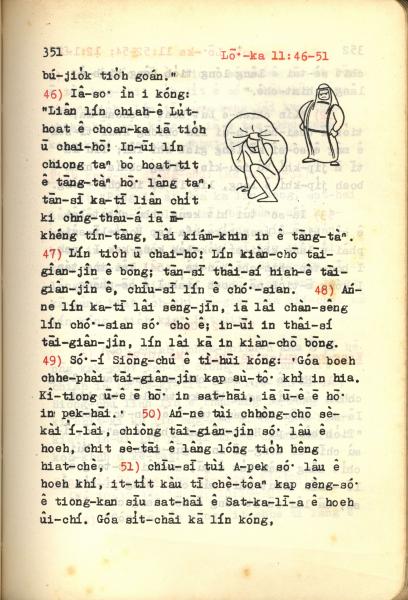 351
Lō·-ka 11:46-51
bú-jio̍k tio̍h goán."
46) Iâ-so· ìn i kóng:
"Liân lín chiah-ê Lu̍t-
hoat ê choan-ka iā tio̍h
ū chai-hō! In-ūi lín
chiong taⁿ bô hoat-tit
ê tāng-tàⁿ hō· lâng taⁿ,
tān-sī ka-tī liân chi̍t
ki chńg-thâu-á iā m̄-
khéng tín-tāng, lâi kiám-khin in ê tāng-tàⁿ.
47) Lín tio̍h ū chai-hō! Lín kiàn-chō tāi-
giân-jîn ê bōng; tān-sī thâi-sí hiah-ê tāi-
giân-jîn ê, chiū-sī lín ê chó·-sian. 48) Án-
ne lín ka-tī lâi sêng-jīn, iā lâi chàn-sêng
lín chó·-sian só· chò ê; in-ūi in thâi-sí
tāi-giân-jîn, lín lâi kā in kiàn-chō bōng.
49) Só·-í Siōng-chú ê tì-hūi kóng: 'Góa boeh
chhe-phài tāi-giân-jîn kap sù-tô· khì in hia.
Kî-tiong ū-ê ē hō· in sat-hāi, iā ū-ê ē hō·
in pek-hāi.' 50) Án-ne tùi chhòng-chō sè-
kài í-lâi, chiòng tāi-giân-jîn só· lâu ê
hoeh, chit sè-tāi ê lâng lóng tio̍h hêng
hiat-chè, 51) chiū-sī tùi A-pek só· lâu ê
hoeh khí, it-ti̍t kàu tī chè-tôaⁿ kap sèng-só·
ê tiong-kan siū sat-hāi ê Sat-ka-lī-a ê hoeh
ûi-chí. Góa si̍t-chāi kā lín kóng,